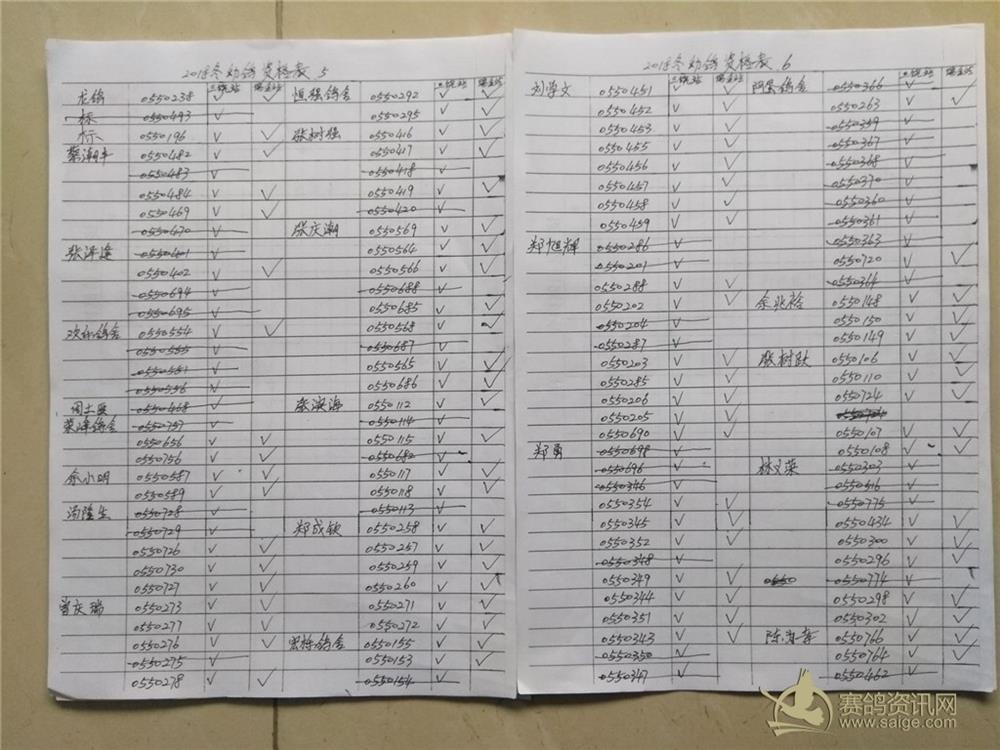 2018冬幼鸽资格表 5
龙锦 0550238 ✓ ✓ 恒强鸽舍 0550292 ✓ ✓
一栋 0550493 ✓ 0550295 ✓ ✓
0550196 ✓ ✓ 张树强 0550416 ✓ ✓
蔡潮丰 0550482 ✓ ✓ 0550417 ✓ ✓
0550483 ✓ 0550418 ✓
0550484 ✓ ✓ 0550419 ✓ ✓
0550469 ✓ ✓ 0550420 ✓
0550470 ✓ 张庆潮 0550569 ✓ ✓
0550401 ✓ 0550564 ✓ ✓
0550402 ✓ ✓ 0550566 ✓ ✓
0550694 ✓ 0550688 ✓
0550695 ✓ 0550685 ✓ ✓
鸽舍 0550554 ✓ ✓ 0550568 ✓ ✓
0550555 ✓ 0550687 ✓
0550551 ✓ 0550565 ✓ ✓
0550556 ✓ 0550686 ✓ ✓
0550468 ✓ 张滨海 0550112 ✓ ✓
荣泽鸽舍 0550757 ✓ 0550114 ✓
0550656 ✓ ✓ 0550115 ✓ ✓
0550756 ✓ ✓ 0550682 ✓
余小明 0550587 ✓ ✓ 0550117 ✓ ✓
0550589 ✓ ✓ 0550118 ✓ ✓
汤隆生 0550728 ✓ 0550113 ✓
0550729 ✓ 郑成钦 0550258 ✓ ✓
0550726 ✓ ✓ 0550267 ✓ ✓
0550730 ✓ ✓ 0550259 ✓ ✓
0550727 ✓ ✓ 0550260 ✓ ✓
庆瑞 0550273 ✓ ✓ 0550271 ✓ ✓
0550277 ✓ ✓ 0550272 ✓ ✓
0550276 ✓ ✓ 宏栋鸽舍 0550155 ✓ ✓
0550275 ✓ 0550153 ✓ ✓
0550278 ✓ ✓ 0550154 ✓
2018冬幼鸽资格表 6
刘学文 0550451 ✓ ✓ 鸽舍 0550366 ✓ ✓
0550452 ✓ ✓ 0550263 ✓ ✓
0550453 ✓ ✓ 0550359 ✓
0550455 ✓ ✓ 0550367 ✓
0550456 ✓ ✓ 0550368 ✓
0550457 ✓ ✓ 0550370 ✓
0550458 ✓ ✓ 0550360 ✓
0550459 ✓ ✓ 0550361 ✓
郑旭辉 0550286 ✓ 0550363 ✓
0550201 ✓ 0550720 ✓ ✓
0550288 ✓ ✓ 0550364 ✓
0550202 ✓ ✓ 余兆裕 0550148 ✓ ✓
0550204 ✓ 0550150 ✓ ✓
0550287 ✓ 0550149 ✓ ✓
0550203 ✓ ✓ 张树跃 0550106 ✓ ✓
0550285 ✓ ✓ 0550110 ✓ ✓
0550206 ✓ ✓ 0550724 ✓ ✓
0550205 ✓ ✓
0550690 ✓ ✓ 0550107 ✓ ✓
郑勇 0550698 ✓ 0550108 ✓ ✓
0550696 ✓ 林文荣 0550303 ✓
0550346 ✓ 0550516 ✓
0550354 ✓ ✓ 0550775 ✓
0550345 ✓ ✓ 0550434 ✓ ✓
0550352 ✓ ✓ 0550300 ✓ ✓
0550348 ✓ 0550296 ✓ ✓
0550349 ✓ ✓ 0550774 ✓
0550344 ✓ ✓ 0550298 ✓ ✓
0550351 ✓ ✓ 0550302 ✓ ✓
0550343 ✓ ✓ 0550766 ✓ ✓
0550350 ✓ 0550764 ✓ ✓
0550347 ✓ 0550462 ✓ ✓
赛鸽资讯网
www.saige.com